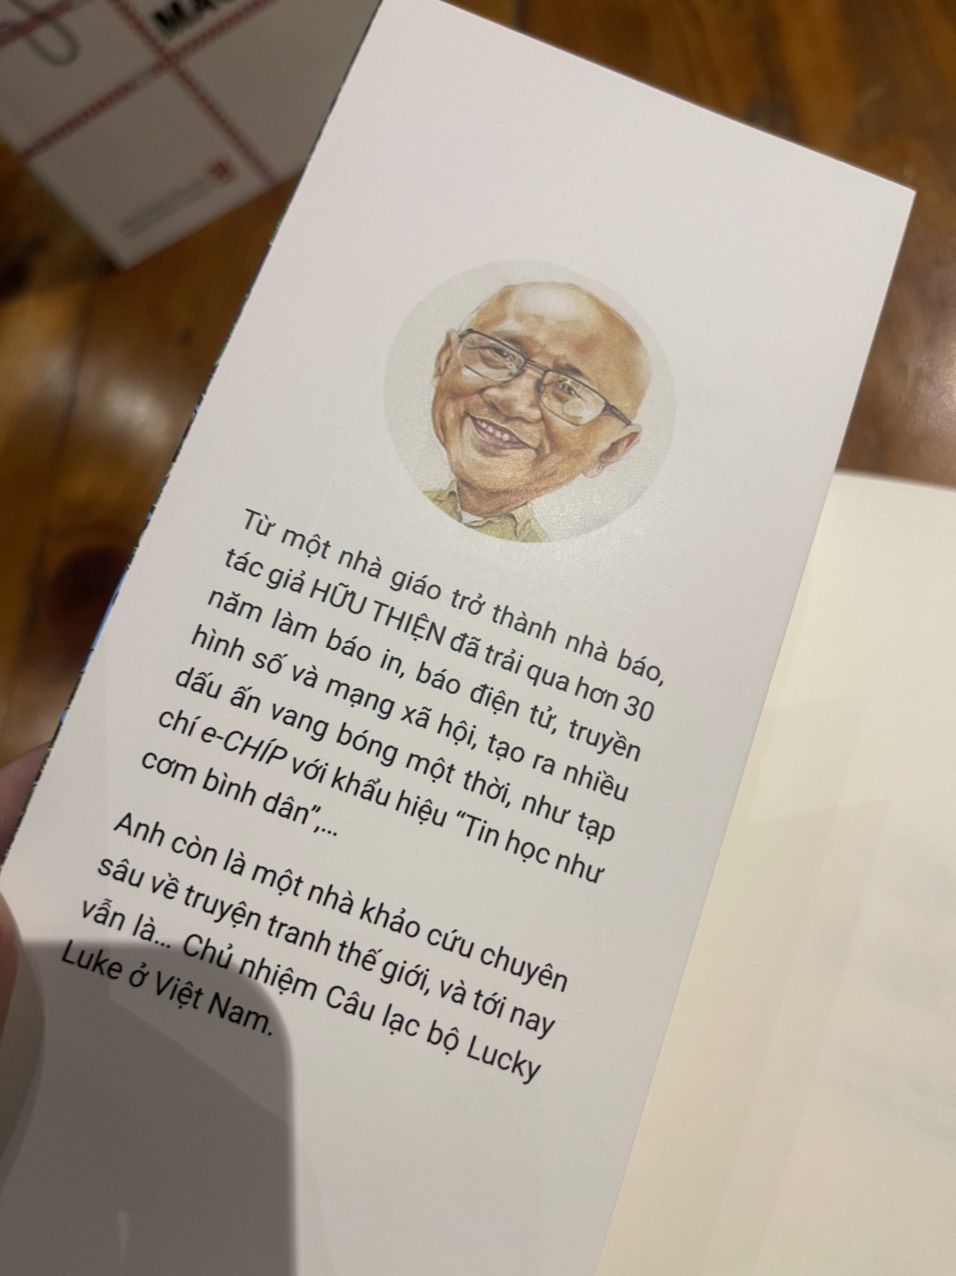 MA
Từ một nhà giáo trở thành nhà báo,
tác giả HỮU THIỆN đã trải qua hơn 30
năm làm báo in, báo điện tử, truyền
hình số và mạng xã hội, tạo ra nhiều
dấu ấn vang bóng một thời, như tạp
chí e-CHÍP với khẩu hiệu “Tin học như
cơm bình dân”,...
Anh còn là một nhà khảo cứu chuyên
sâu về truyện tranh thế giới, và tới nay
vẫn là... Chủ nhiệm Câu lạc bộ Lucky
Luke ở Việt Nam.